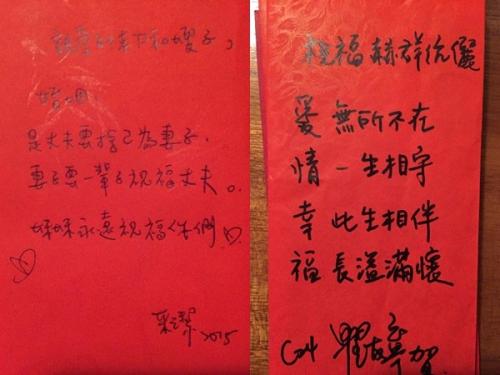 親愛的幸下和嫂子，
婚姻！
是丈夫要捨己為妻子.
妻子要一輩子祝福丈夫。
妹妹永遠祝福你們♡。
2015
祝福赫祥伉儷
愛 無所不在
情 一生相守
幸 此生相伴
福 長溢滿懷
賀